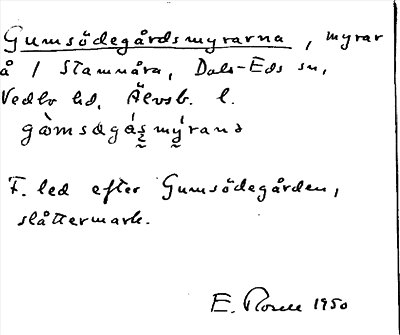 Gumsödegårdsmyrarna, myrar
å 1 Stamnåra, Dals-Eds sn,
Vedbo hd, Älvsb. l.
F. led efter Gumsödegården,
slåttermark.
E. Rosell 1950